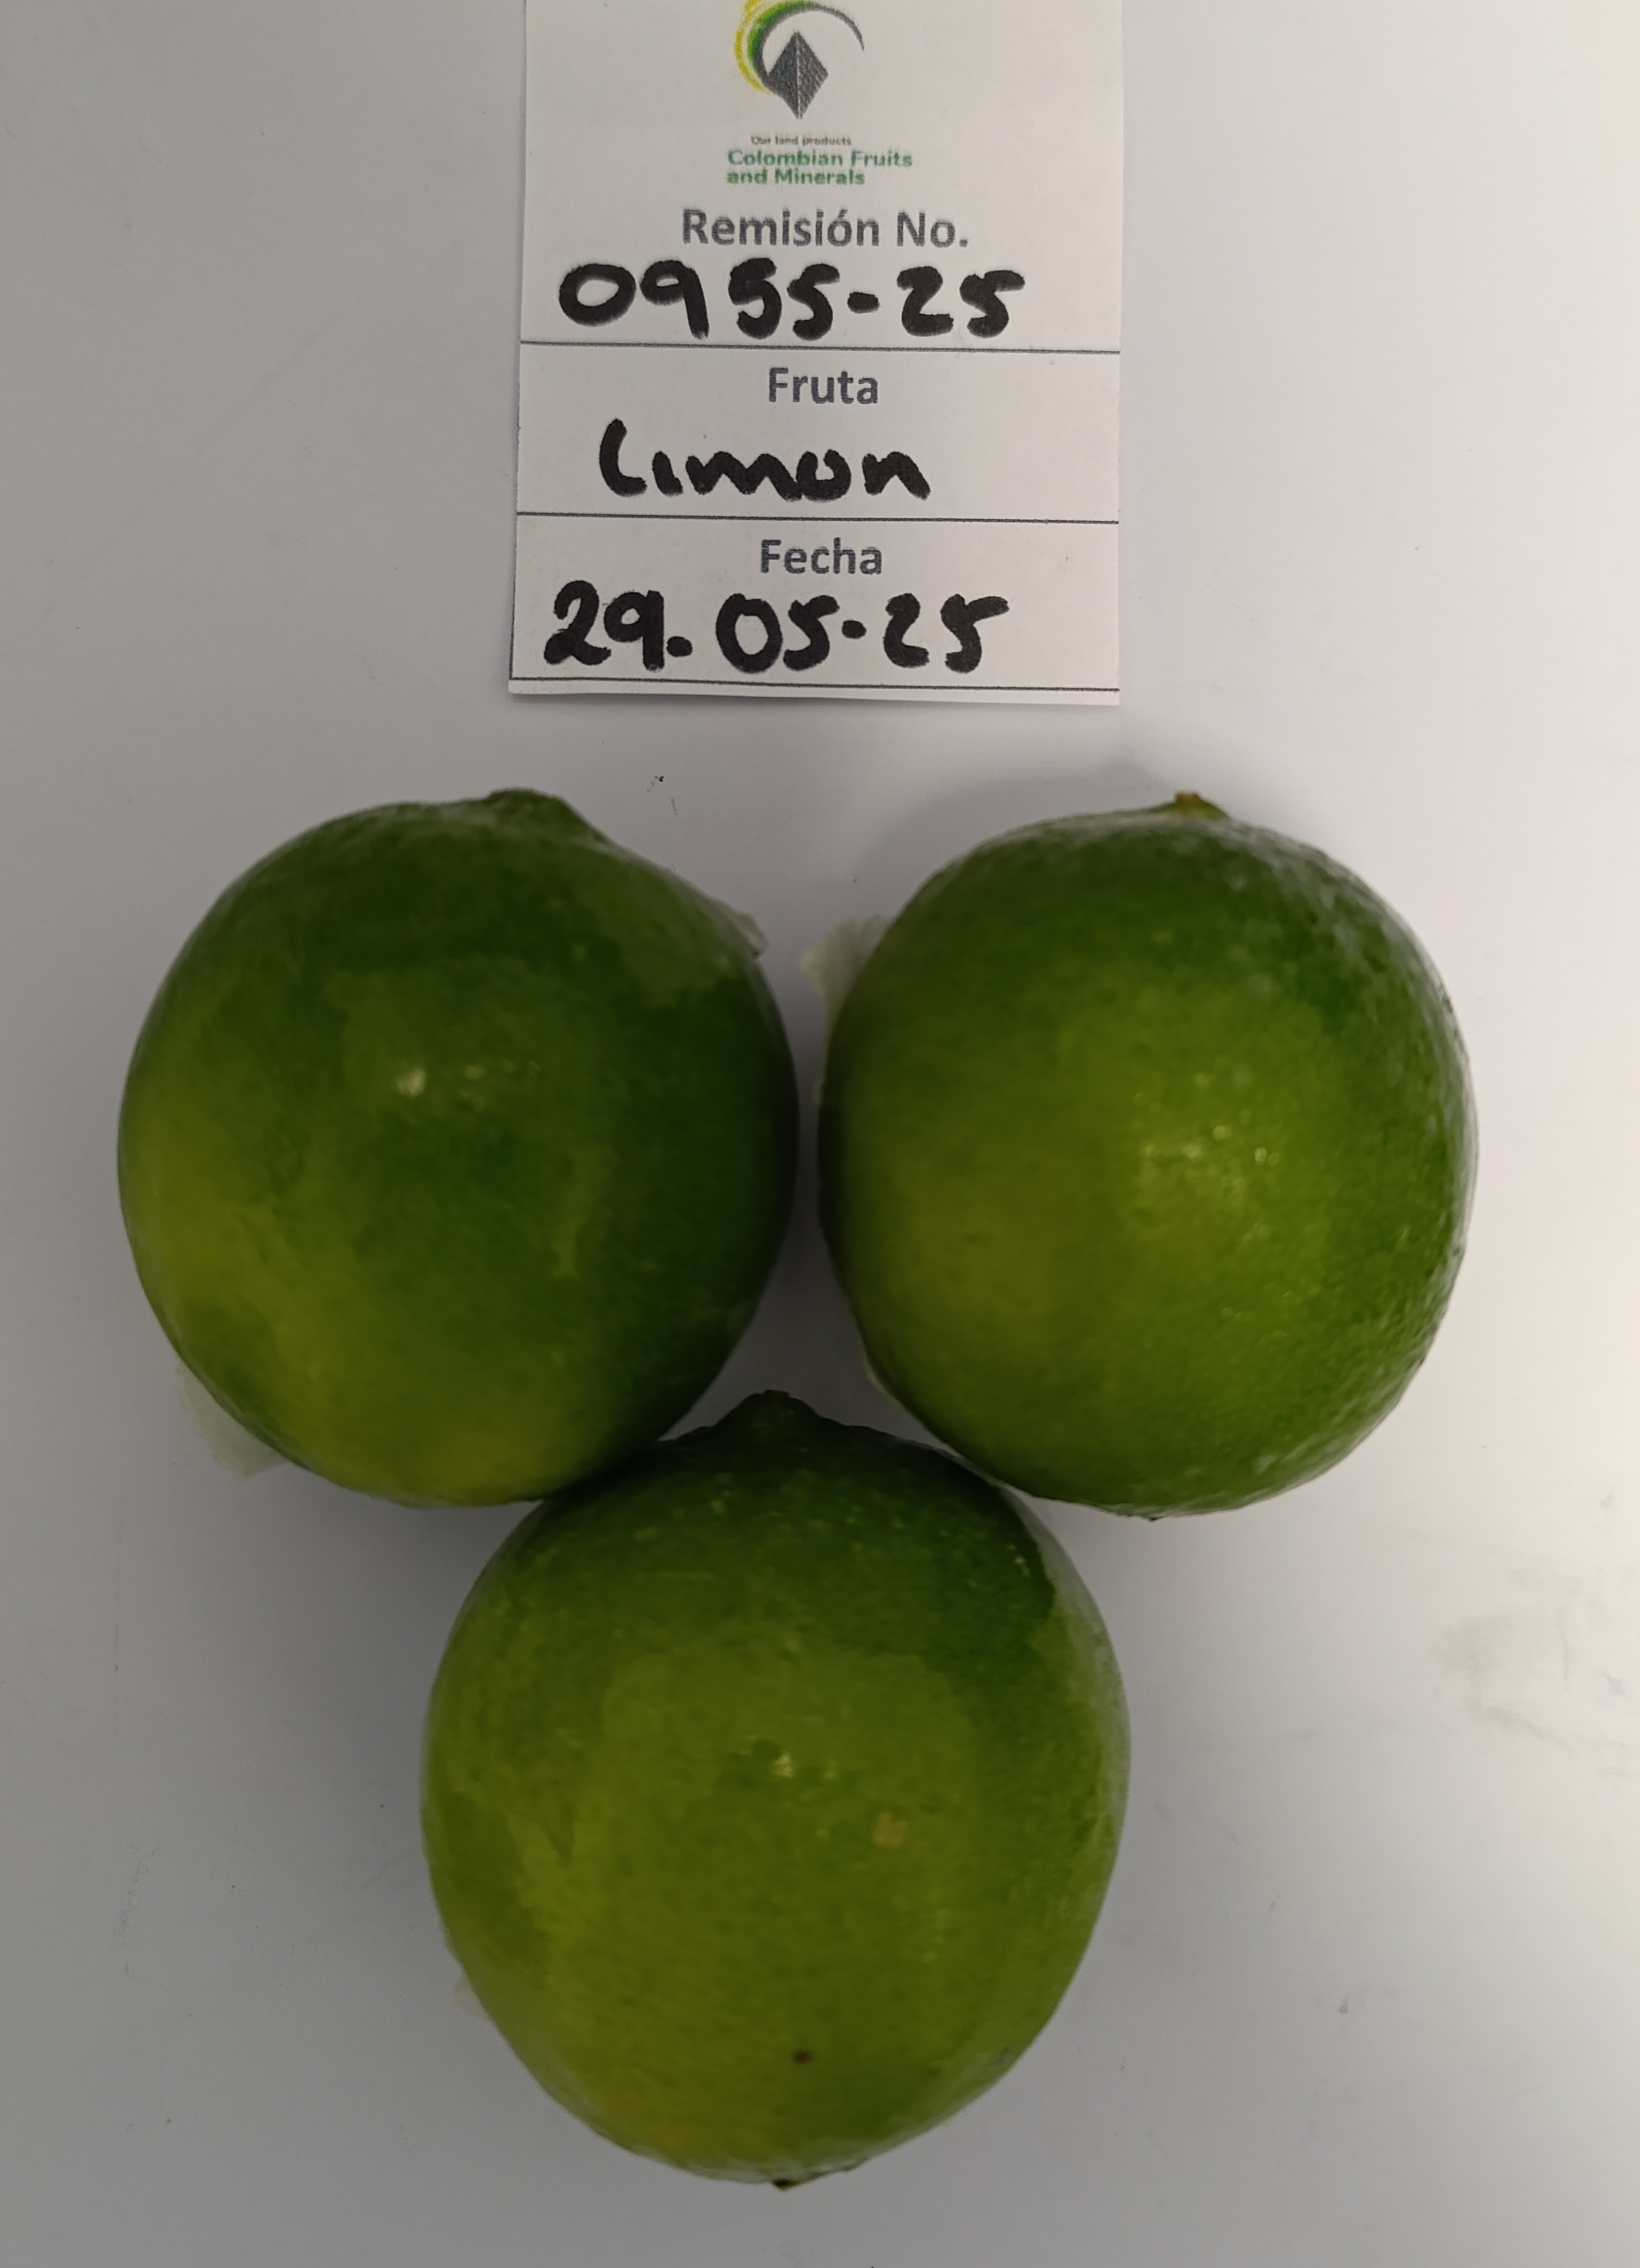 Our land products
Colombian Fruits
and Minerals
Remisión No.
0955-25
Fruta
Limon
Fecha
29.05-25